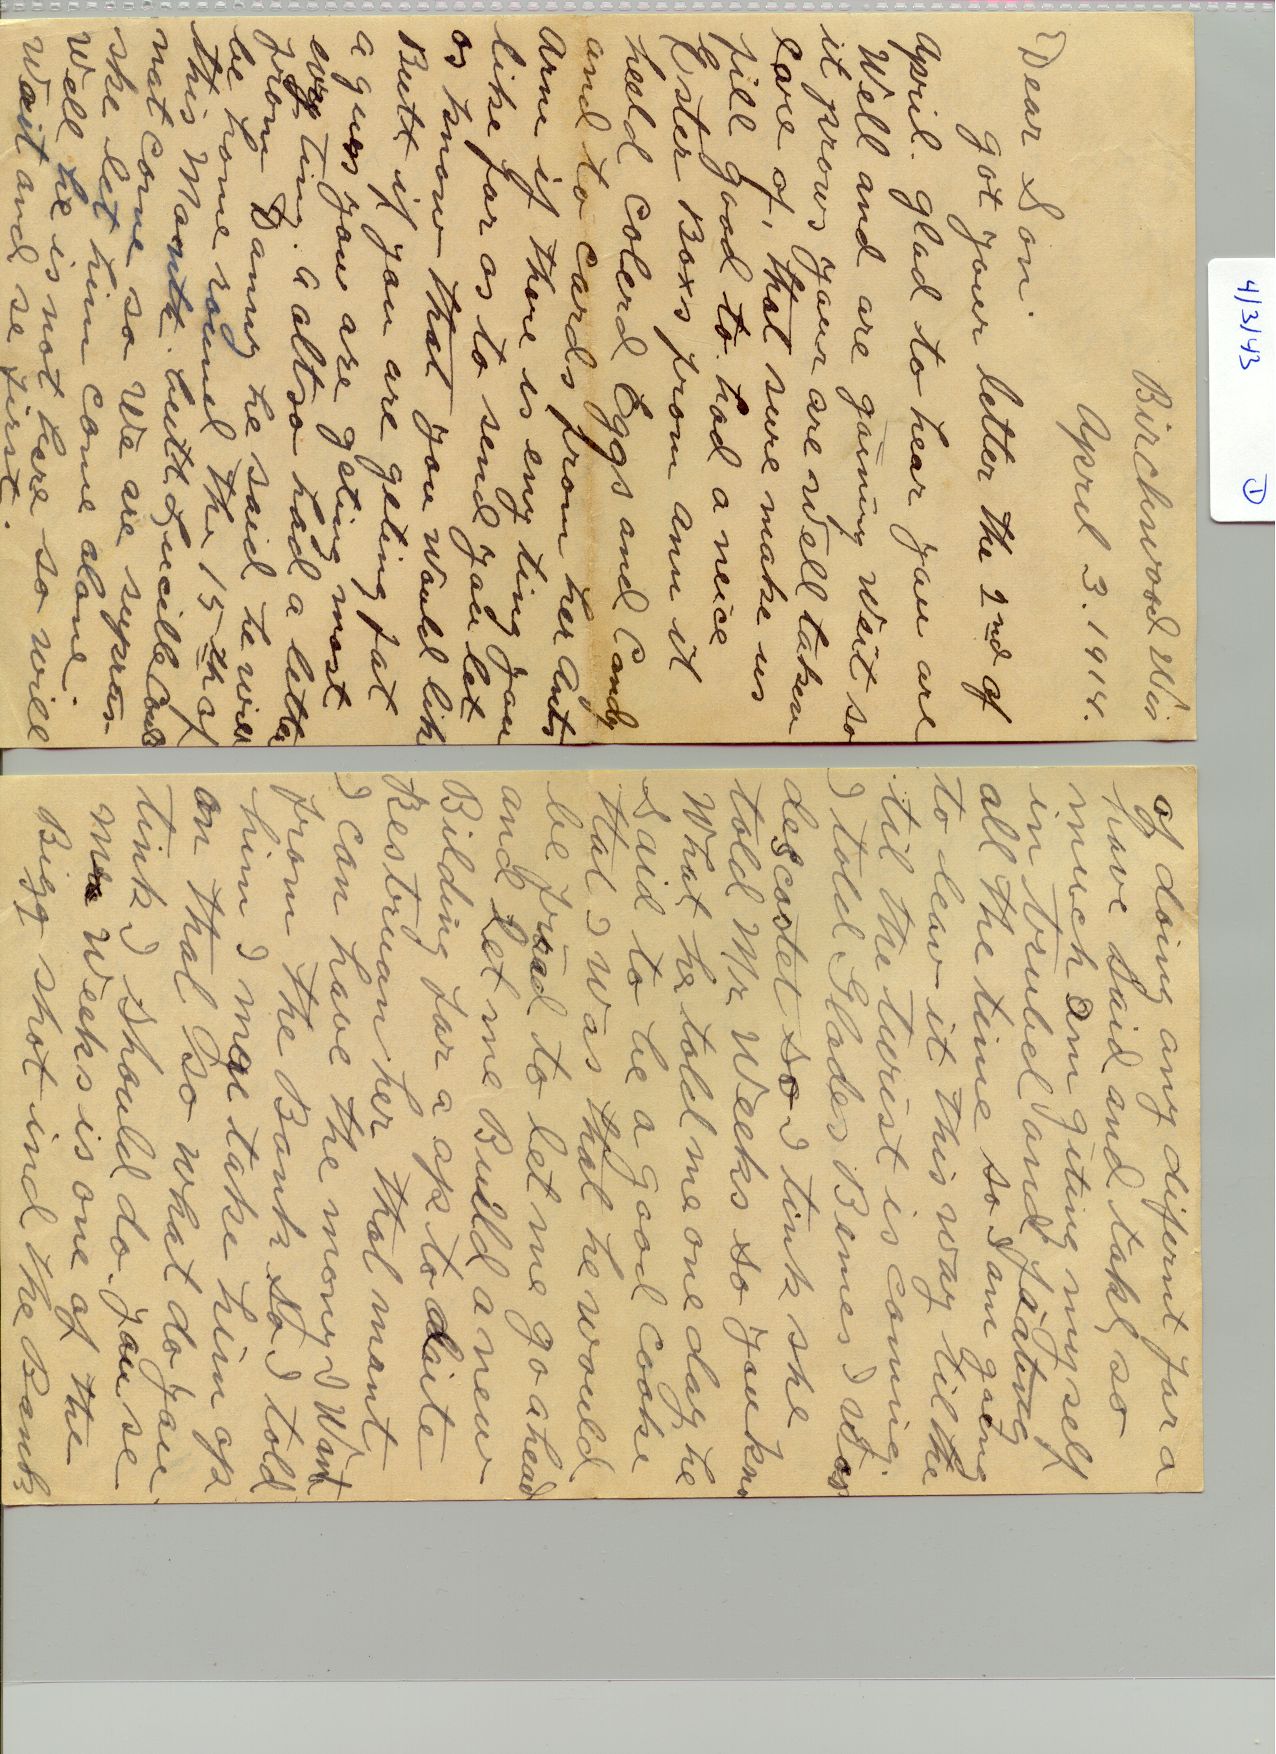 4/3/43
1
Birchwood Wis
April 3. 1914.
Dear Son.
got your letter the 2nd of
April. glad to hear you are
Well and are gaining Weit so
it prows your are well taken
Care of, that sure make us
fill good to. had a neice
Ester Boxs from ann it
held Colerd Eggs and Candy
and to cards from her Auts
Arne if there is eny ting you
like far os to send you let
os know that you would like
Butt if you are geting fat
a guess you are geting most
evry ting. a altso had a letter
from Danny he said he will
be home round the 15th of
this Month. butt Lucille Could
nat Come so We are suprisn
she let him come alone.
Well he is not here so will
Wait and se first.
of doing any difernt far a
have Said and take so
much am giting my self
in trubel and
all the time so I am going
to leav it this way till the
till the turist is coming.
I told Glades Bemes I was
descootet so I tink she
told Mr Weeks so you know
What he told me one day he
Said to be a good Cooke
that I was that he would
be to let me go ahead
and let me Build a new
Bilding far a op to daite
Bestruanher that mont
I can have the mony I Want
from the Bank. So I told
him I mae take him op
on that So what do you
tink I should do. you se
Mr Weeks is one of the
Bigg shot ind the Bank